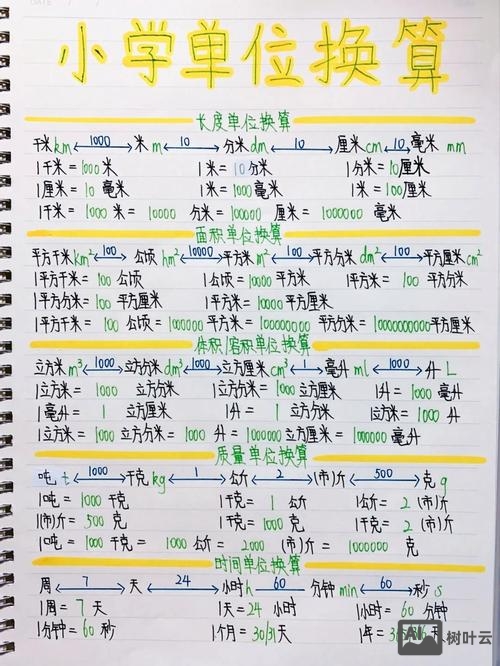 DATE / /
小学单位换算
长度单位换算
千米km 1000 米 m 10 分米 dm 10 厘米 cm 10 毫米 mm
1千米=1000米 1米=10分米 1分米=10厘米
1厘米=10毫米 1米=1000毫米 1米=100厘米
1千米=1000米=10000分米=100000厘米=1000000毫米
面积单位换算
平方千米km² 100 公顷 hm² 10000 平方米 m² 100 平方分米 dm² 100 平方厘米 cm²
1平方千米=100公顷 1公顷=10000平方米 1平方米=100平方分米
1平方分米=100平方厘米 1平方米=10000平方厘米
1平方千米=100公顷=1000000平方米=100000000平方分米=10000000000平方厘米
体积/容积单位换算
立方米 m³ 1000 立方分米 dm³ 1000 立方厘米 cm³ 1 毫升 ml 1000 升 L
1立方米=1000立方分米 1立方分米=1000立方厘米 1升=1000毫升
1毫升=1立方厘米 1升=1立方分米 1立方米=1000升
1立方米=1000立方分米=1000升=1000000立方厘米=1000000毫升
质量单位换算
吨 t 1000 千克 kg 1 公斤 2 (市)斤 500 克 g
1吨=1000千克 1千克=1公斤 1公斤=2(市)斤
1(市)斤=500克 1千克=1000克 1千克=2(市)斤
1吨=1000千克=1000公斤=2000(市)斤=1000000克
时间单位换算
周 7 天 24 小时 h 60 分钟 min 60 秒 s
1周=7天 1天=24小时 1小时=60分钟
1分钟=60秒 1个月=30/31天 1年=
树叶云